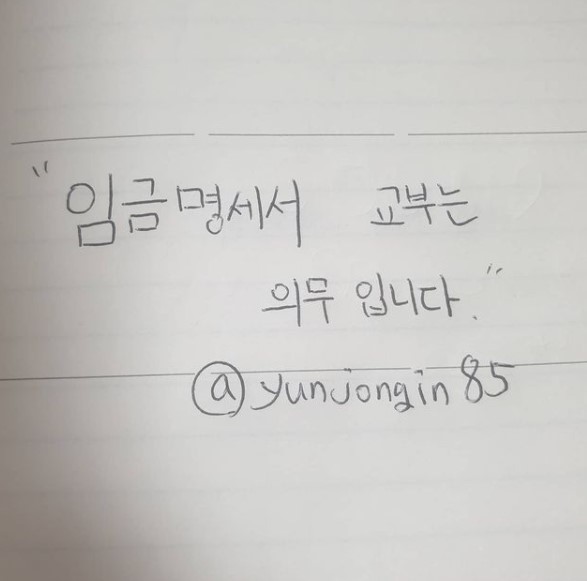 "임금명세서 교부는
의무 입니다."
@yunjongin85